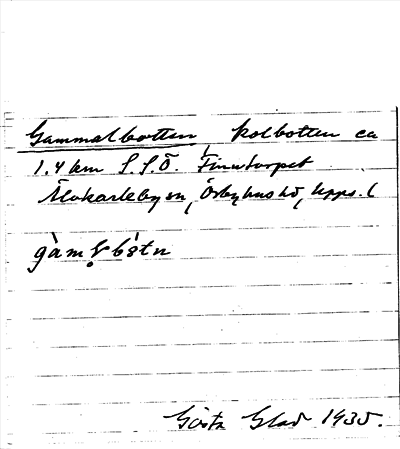 Gammalbotten kolbotten ca
1.4 km S.S.Ö. Finntorpet
Älvkarleby sn, Örbyhus hd, Upps. l
gàmḷbòtn
Gösta Glad 1935.